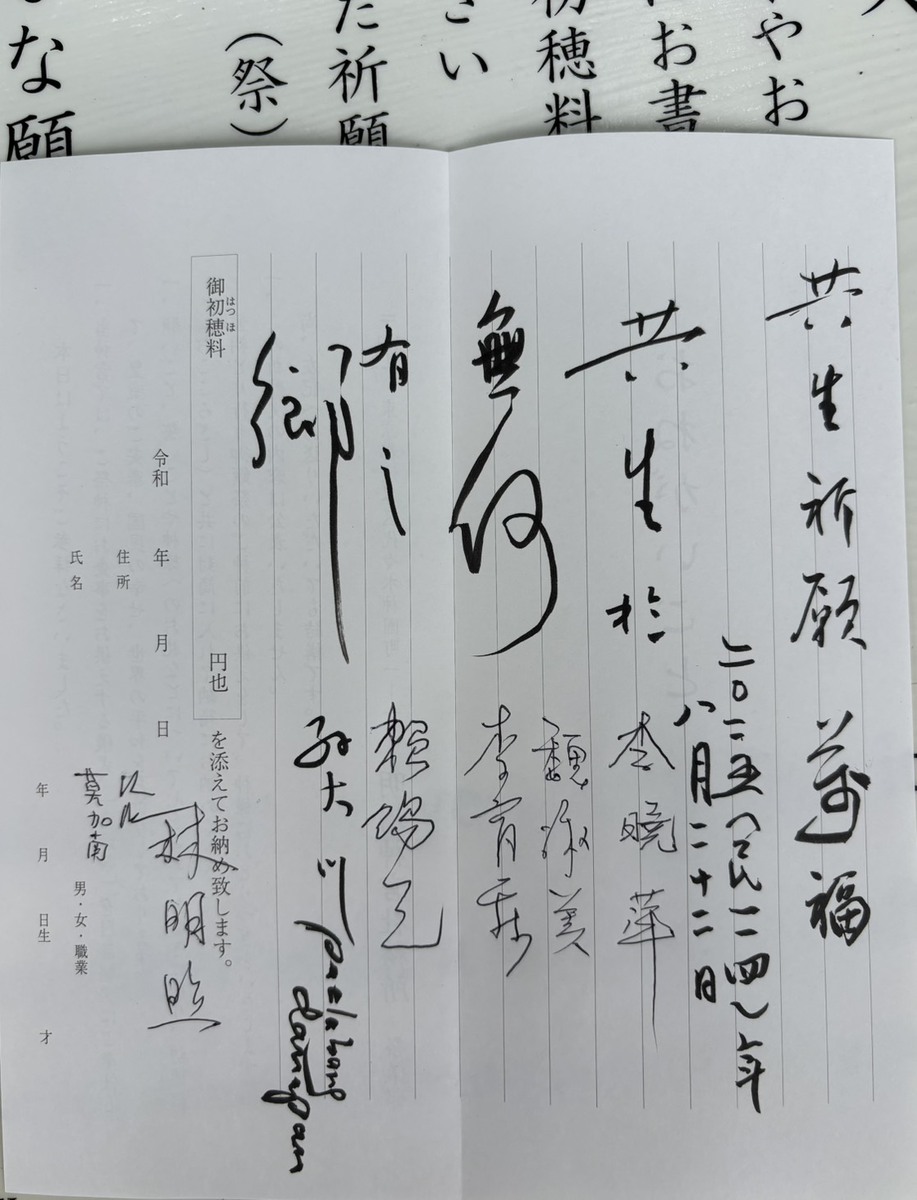 やお
お書
初穂料
さい
た祈願
（祭）
な願
共生祈願萬福
二〇二五（民一一四）年
八月二十二日
共生於
無何
有之
鄉
李曉華
魏淑美
李育霖
孫大川
paelabang
danapan
林明照
莫加南
御初穂料
はつほ
円也
を添えてお納め致します。
令和 年 月 日
住所
氏名
男・女・職業
年 月 日生 才